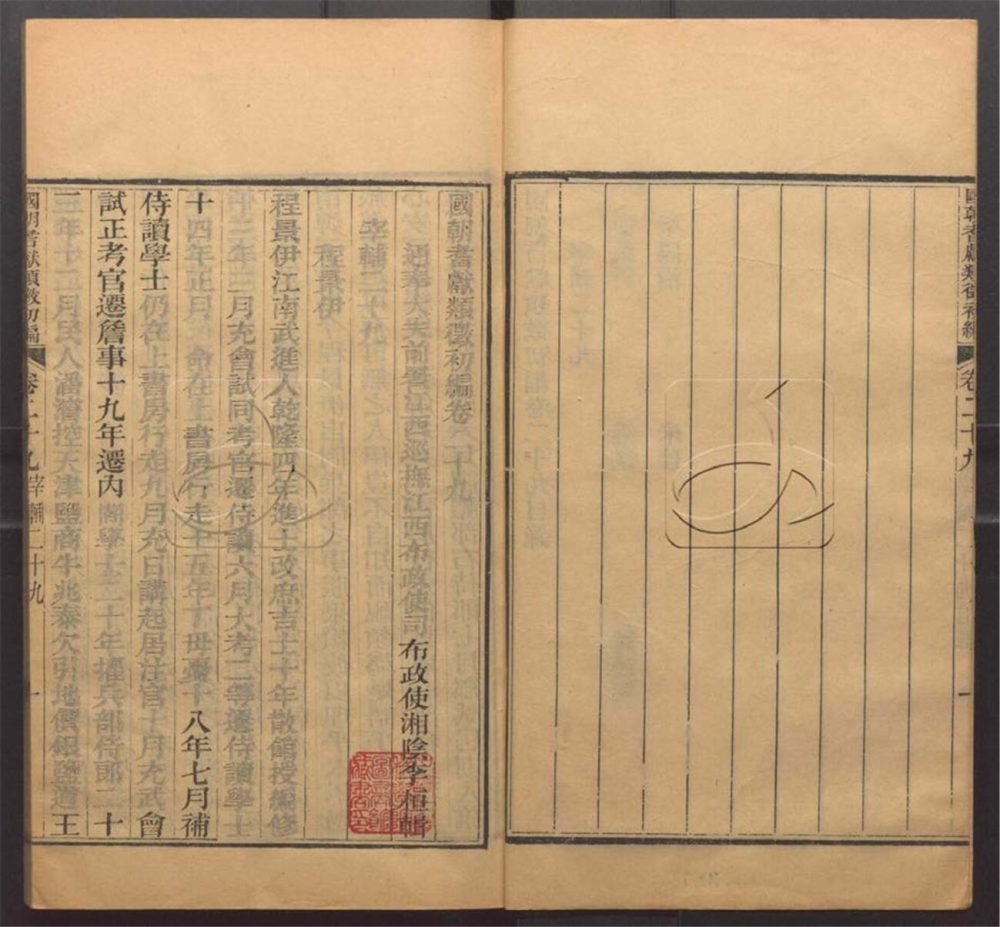 國朝耆獻類徵初編
卷二十九
一
國朝耆獻類徵初編卷二十九
通奉大夫前署江西巡撫江西布政使司布政使湘陰李桓輯
宰輔二十九
程景伊
程景伊江南武進人乾隆四年進士改庶吉士十年散館授編修
年三月充會試同考官遷侍讀六月大考二等遷侍讀學士
十四年正月命在上書房行走十五年丁母憂十八年七月補
侍讀學士仍在上書房行走九月充日講起居注官十月充武會
試正考官遷詹事十九年遷內閣學士二十年擢兵部侍郎二十
三年十二月民人潘濟控天津鹽商牛兆泰欠引地價銀鹽道王
國朝耆獻類徵初編
卷二十九宰輔二十九
一